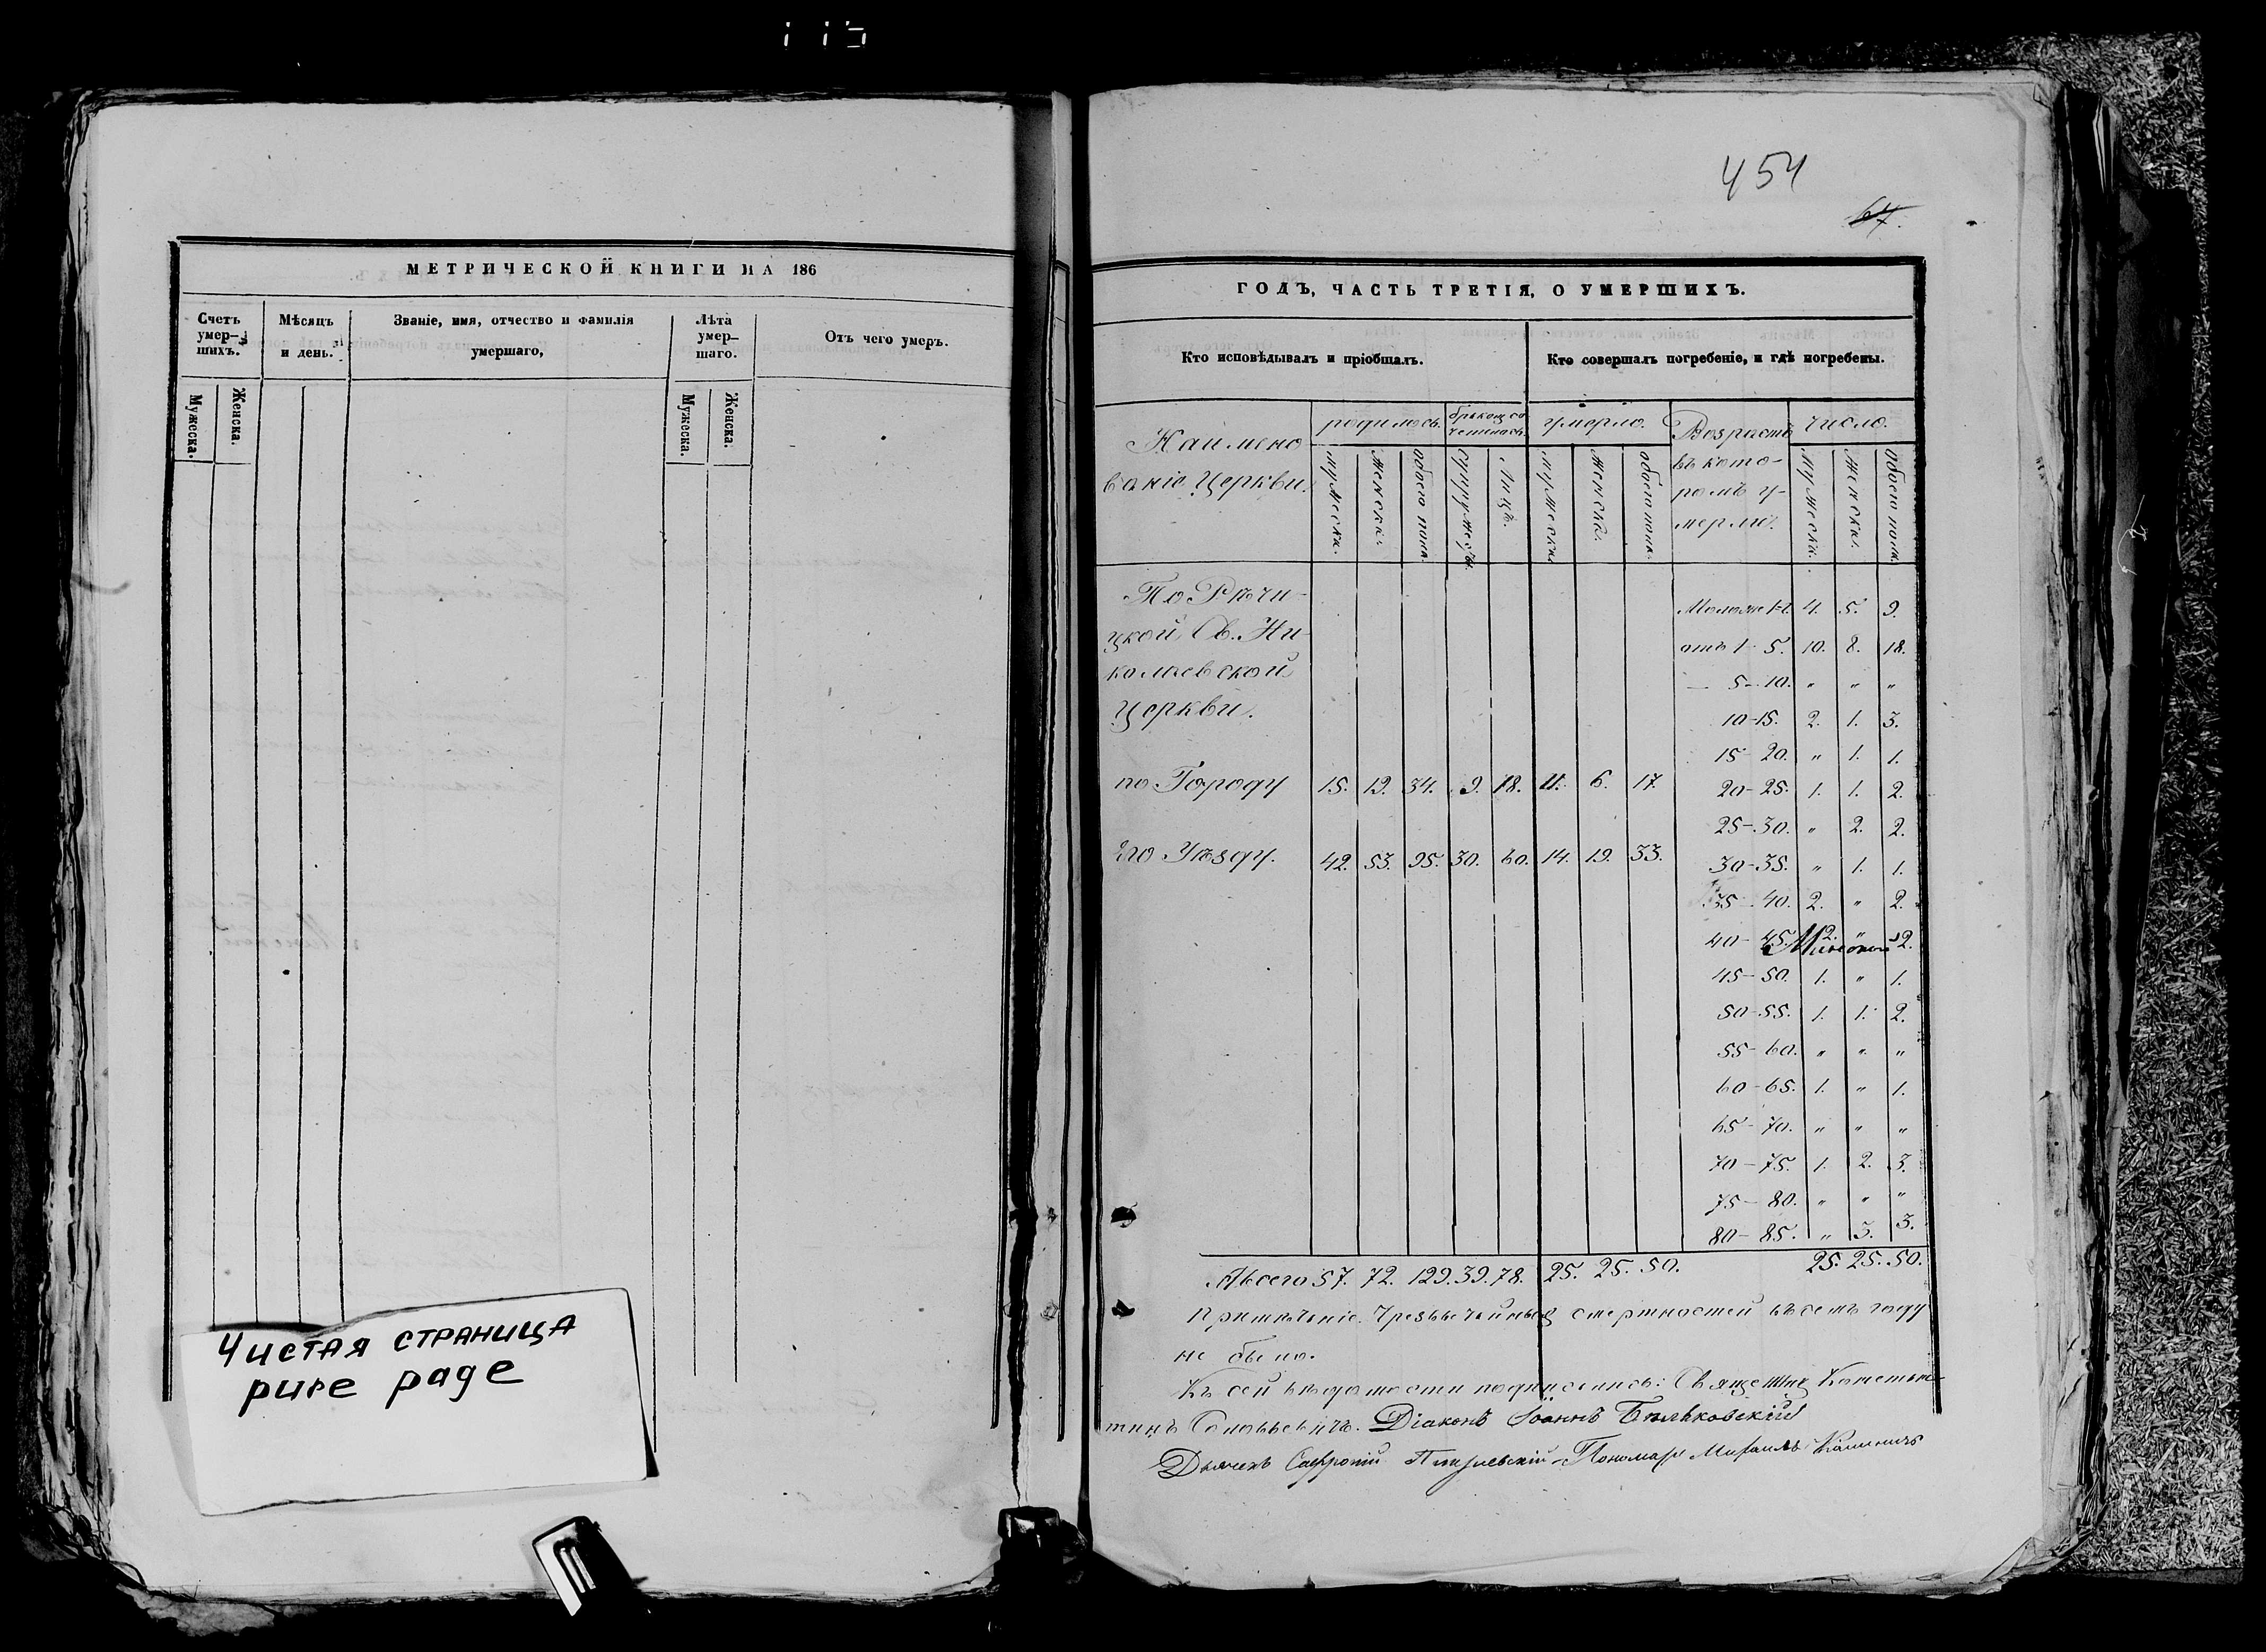 115
МЕТРИЧЕСКОЙ КНИГИ НА 186
Счетъ умер-шихъ.
Мѣсяцъ и день.
Званіе, имя, отчество и фамилія умершаго,
Лѣта умер-шаго.
Отъ чего умеръ.
Мужеска.
Женска.
Мужеска.
Женска.
Чистая страница
pure page
454
67.
ГОДЪ, ЧАСТЬ ТРЕТІЯ, О УМЕРШИХЪ.
Кто исповѣдывалъ и пріобщалъ.
Кто совершалъ погребеніе, и гдѣ погребены.
Наимено
ваніе Церкви.
родилось.
умерло.
Возрастъ
въ кото-
ромъ у-
мерли.
число.
мужеска. женска. обоего пола. супружествъ. Лицъ. мужеска. женска. обоего пола. мужеска. женска. обоего пола.
По Рѣчи-
цкой Св. Ни-
колаевской
Церкви.
по Городу 15. 19. 34. 9. 18. 11. 6. 17.
по Уѣзду. 42. 53. 95. 30. 60. 14. 19. 33.
4. 5. 9.
отъ 1 - 5. 10. 8. 18.
— 5 - 10. " " "
10 - 15. 2. 1. 3.
15 - 20. " 1. 1.
20 - 25. 1. 1. 2.
25 - 30. " 2. 2.
30 - 35. " 1. 1.
35 - 40. 2. " 2.
40 - 45. 2. " 2.
Минской
45 - 50. 1. " 1.
50 - 55. 1. 1. 2.
55 - 60. " " "
60 - 65. 1. " 1.
65 - 70. " " "
70 - 75. 1. 2. 3.
75 - 80. " " "
80 - 85. " 3. 3.
Авсего 57. 72. 129. 39. 78. 25. 25. 50. 25. 25. 50.
Примѣчаніе. Чрезвычайныхъ смертностей въ семъ году
не было.
Къ сей вѣдомости подписались: Священникъ Констан-
тинъ Діаконъ Іоаннъ
Дьячекъ Софроній Пономарь Михаилъ